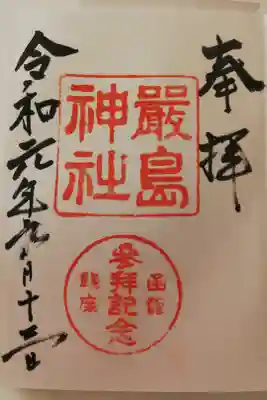 奉拝
厳島
神社
参拝記念
函館
鎮座
令和元年九月十二日